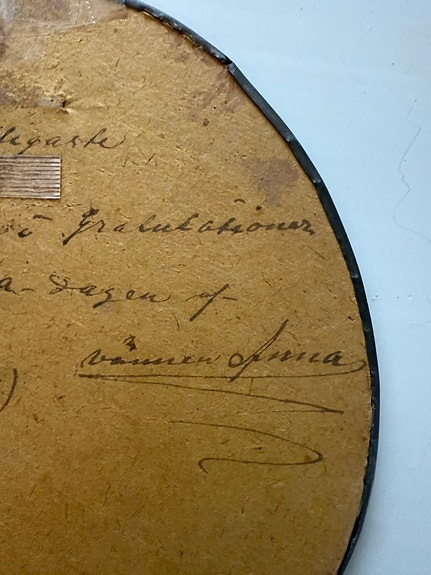 i Gratulationer
a-dagen af
vännen Anna
)